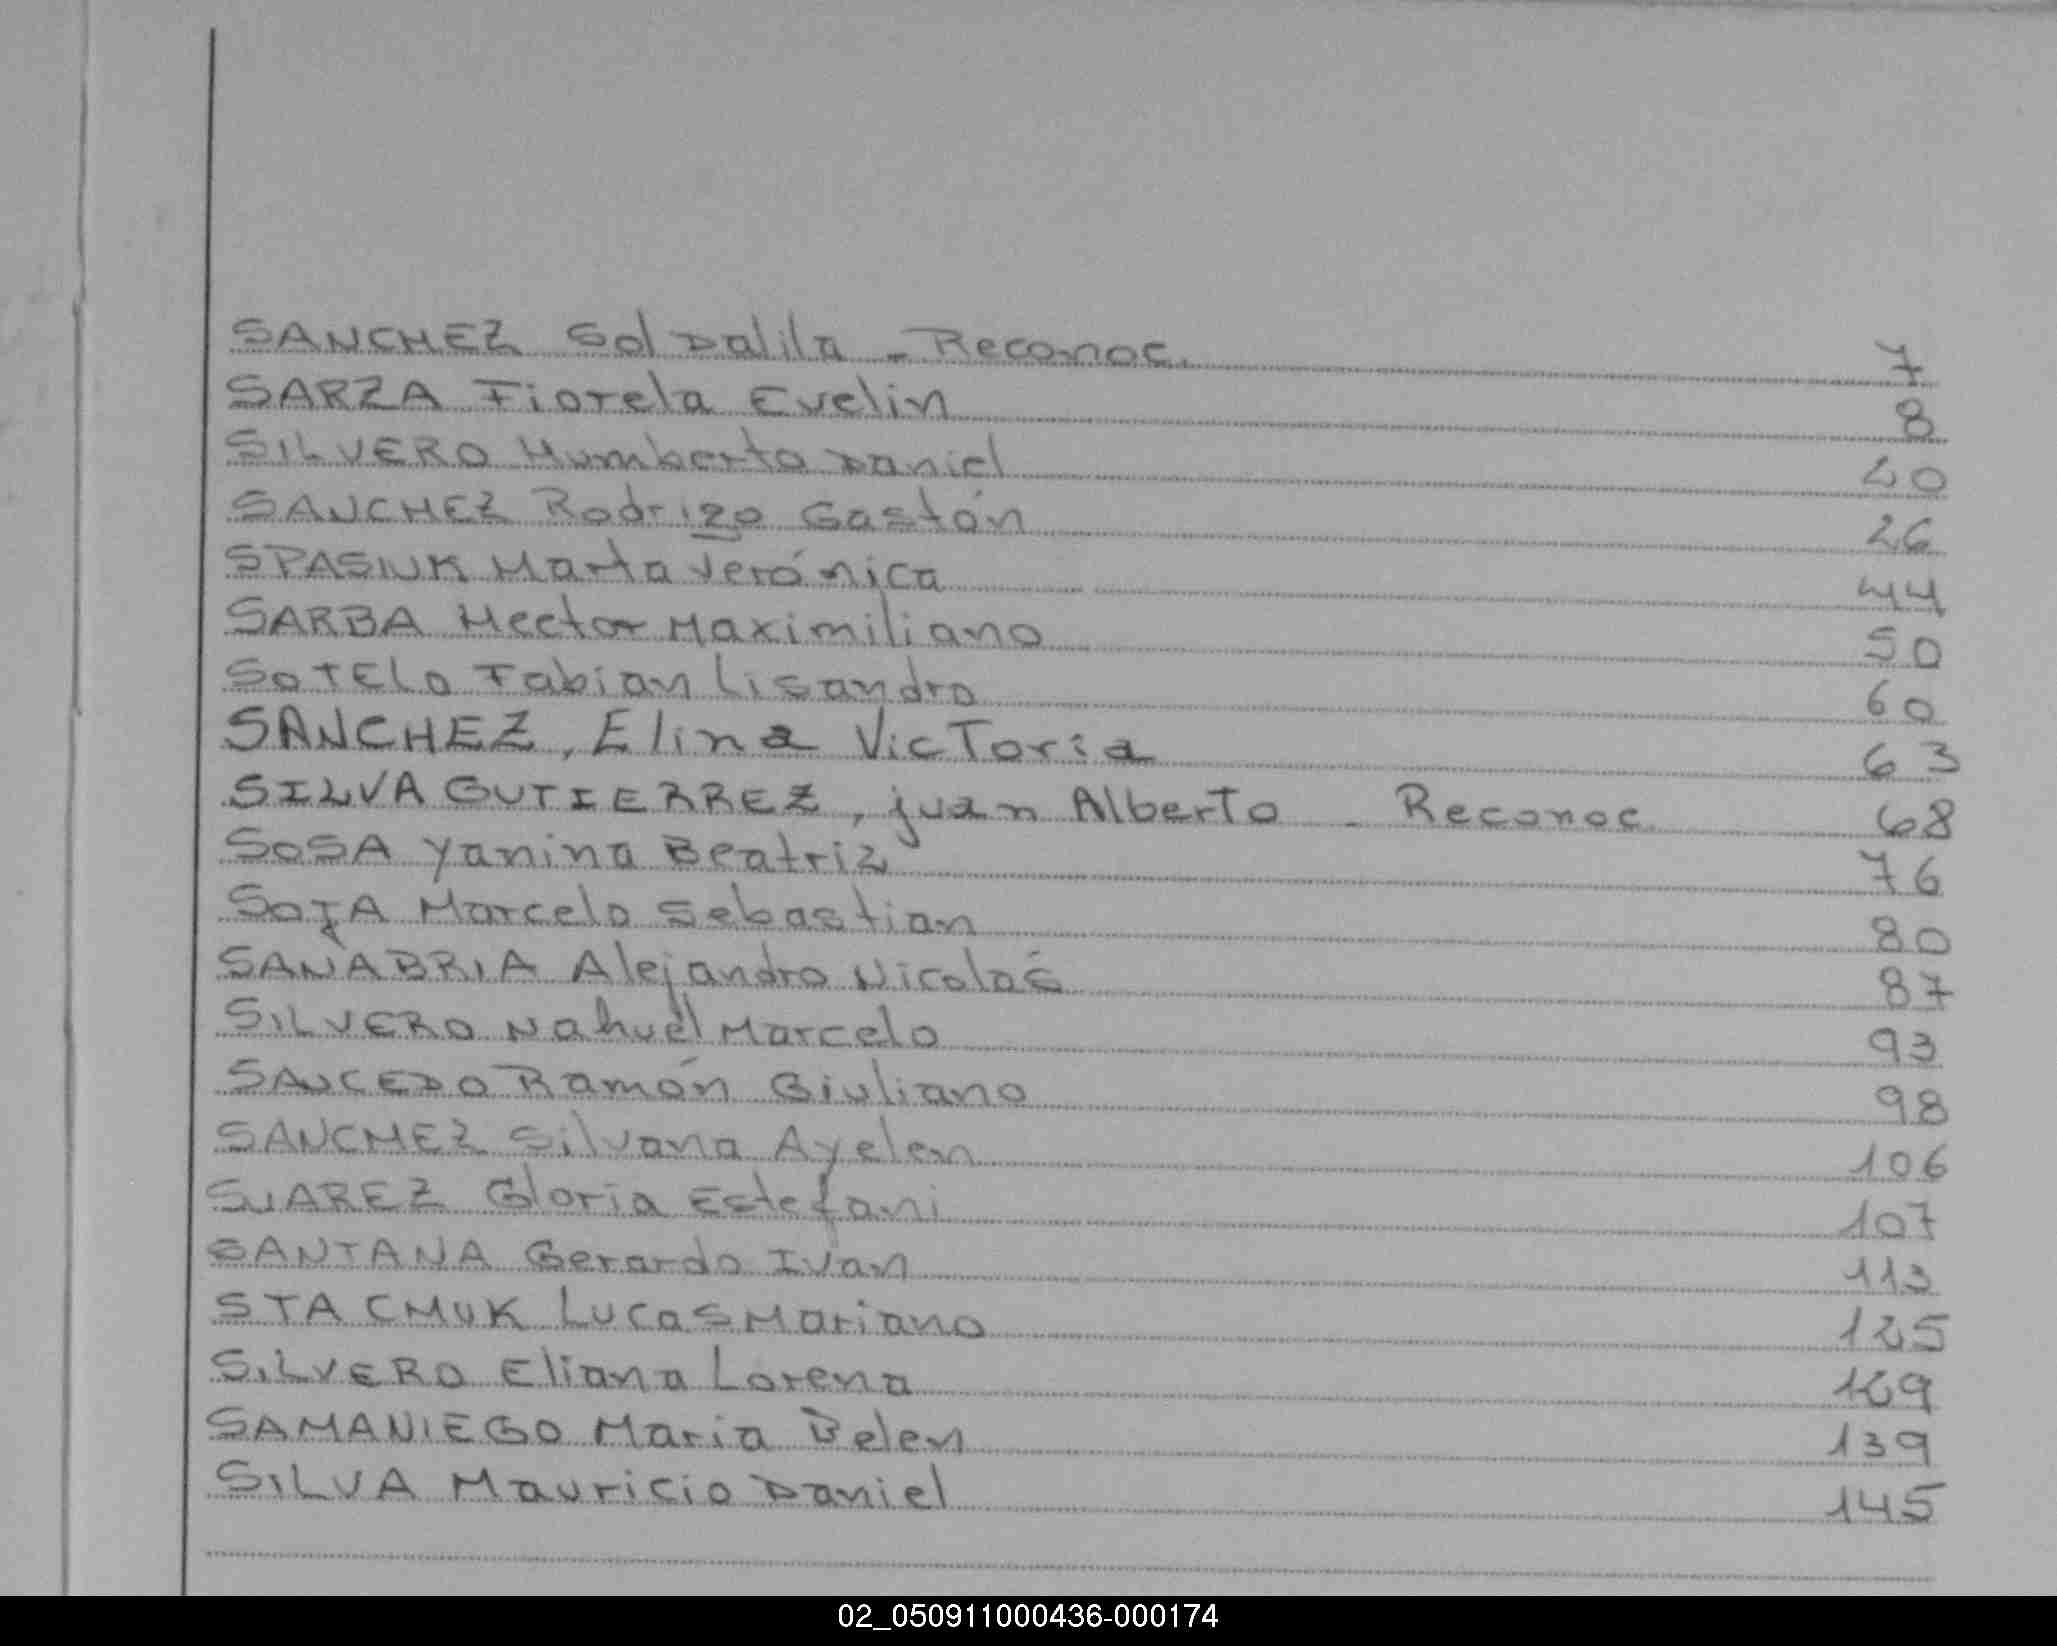 SANCHEZ Sol Dalila - Reconoc. 7
SARZA Fiorela Evelin 8
SILVERO Humberto Daniel 20
SANCHEZ Rodrigo Gastón 26
SPASIUK Marta Verónica 44
SARBA Hector Maximiliano 50
SOTELO Fabian Lisandro 60
SANCHEZ, Elina Victoria 63
SILVA GUTIERREZ, juan Alberto - Reconoc. 68
SOSA Yanina Beatriz 76
SOJA Marcelo Sebastian 80
SANABRIA Alejandro Nicolás 87
SILVERO Nahuel Marcelo 93
SAUCEDO Ramón Giuliano 98
SANCHEZ Silvana Ayelen 106
SUAREZ Gloria Estefani 107
SANTANA Gerardo Ivan 113
STACHUK Lucas Mariano 125
SILVERO Eliana Lorena 129
SAMANIEGO Maria Belen 139
SILVA Mauricio Daniel 145
02_050911000436-000174